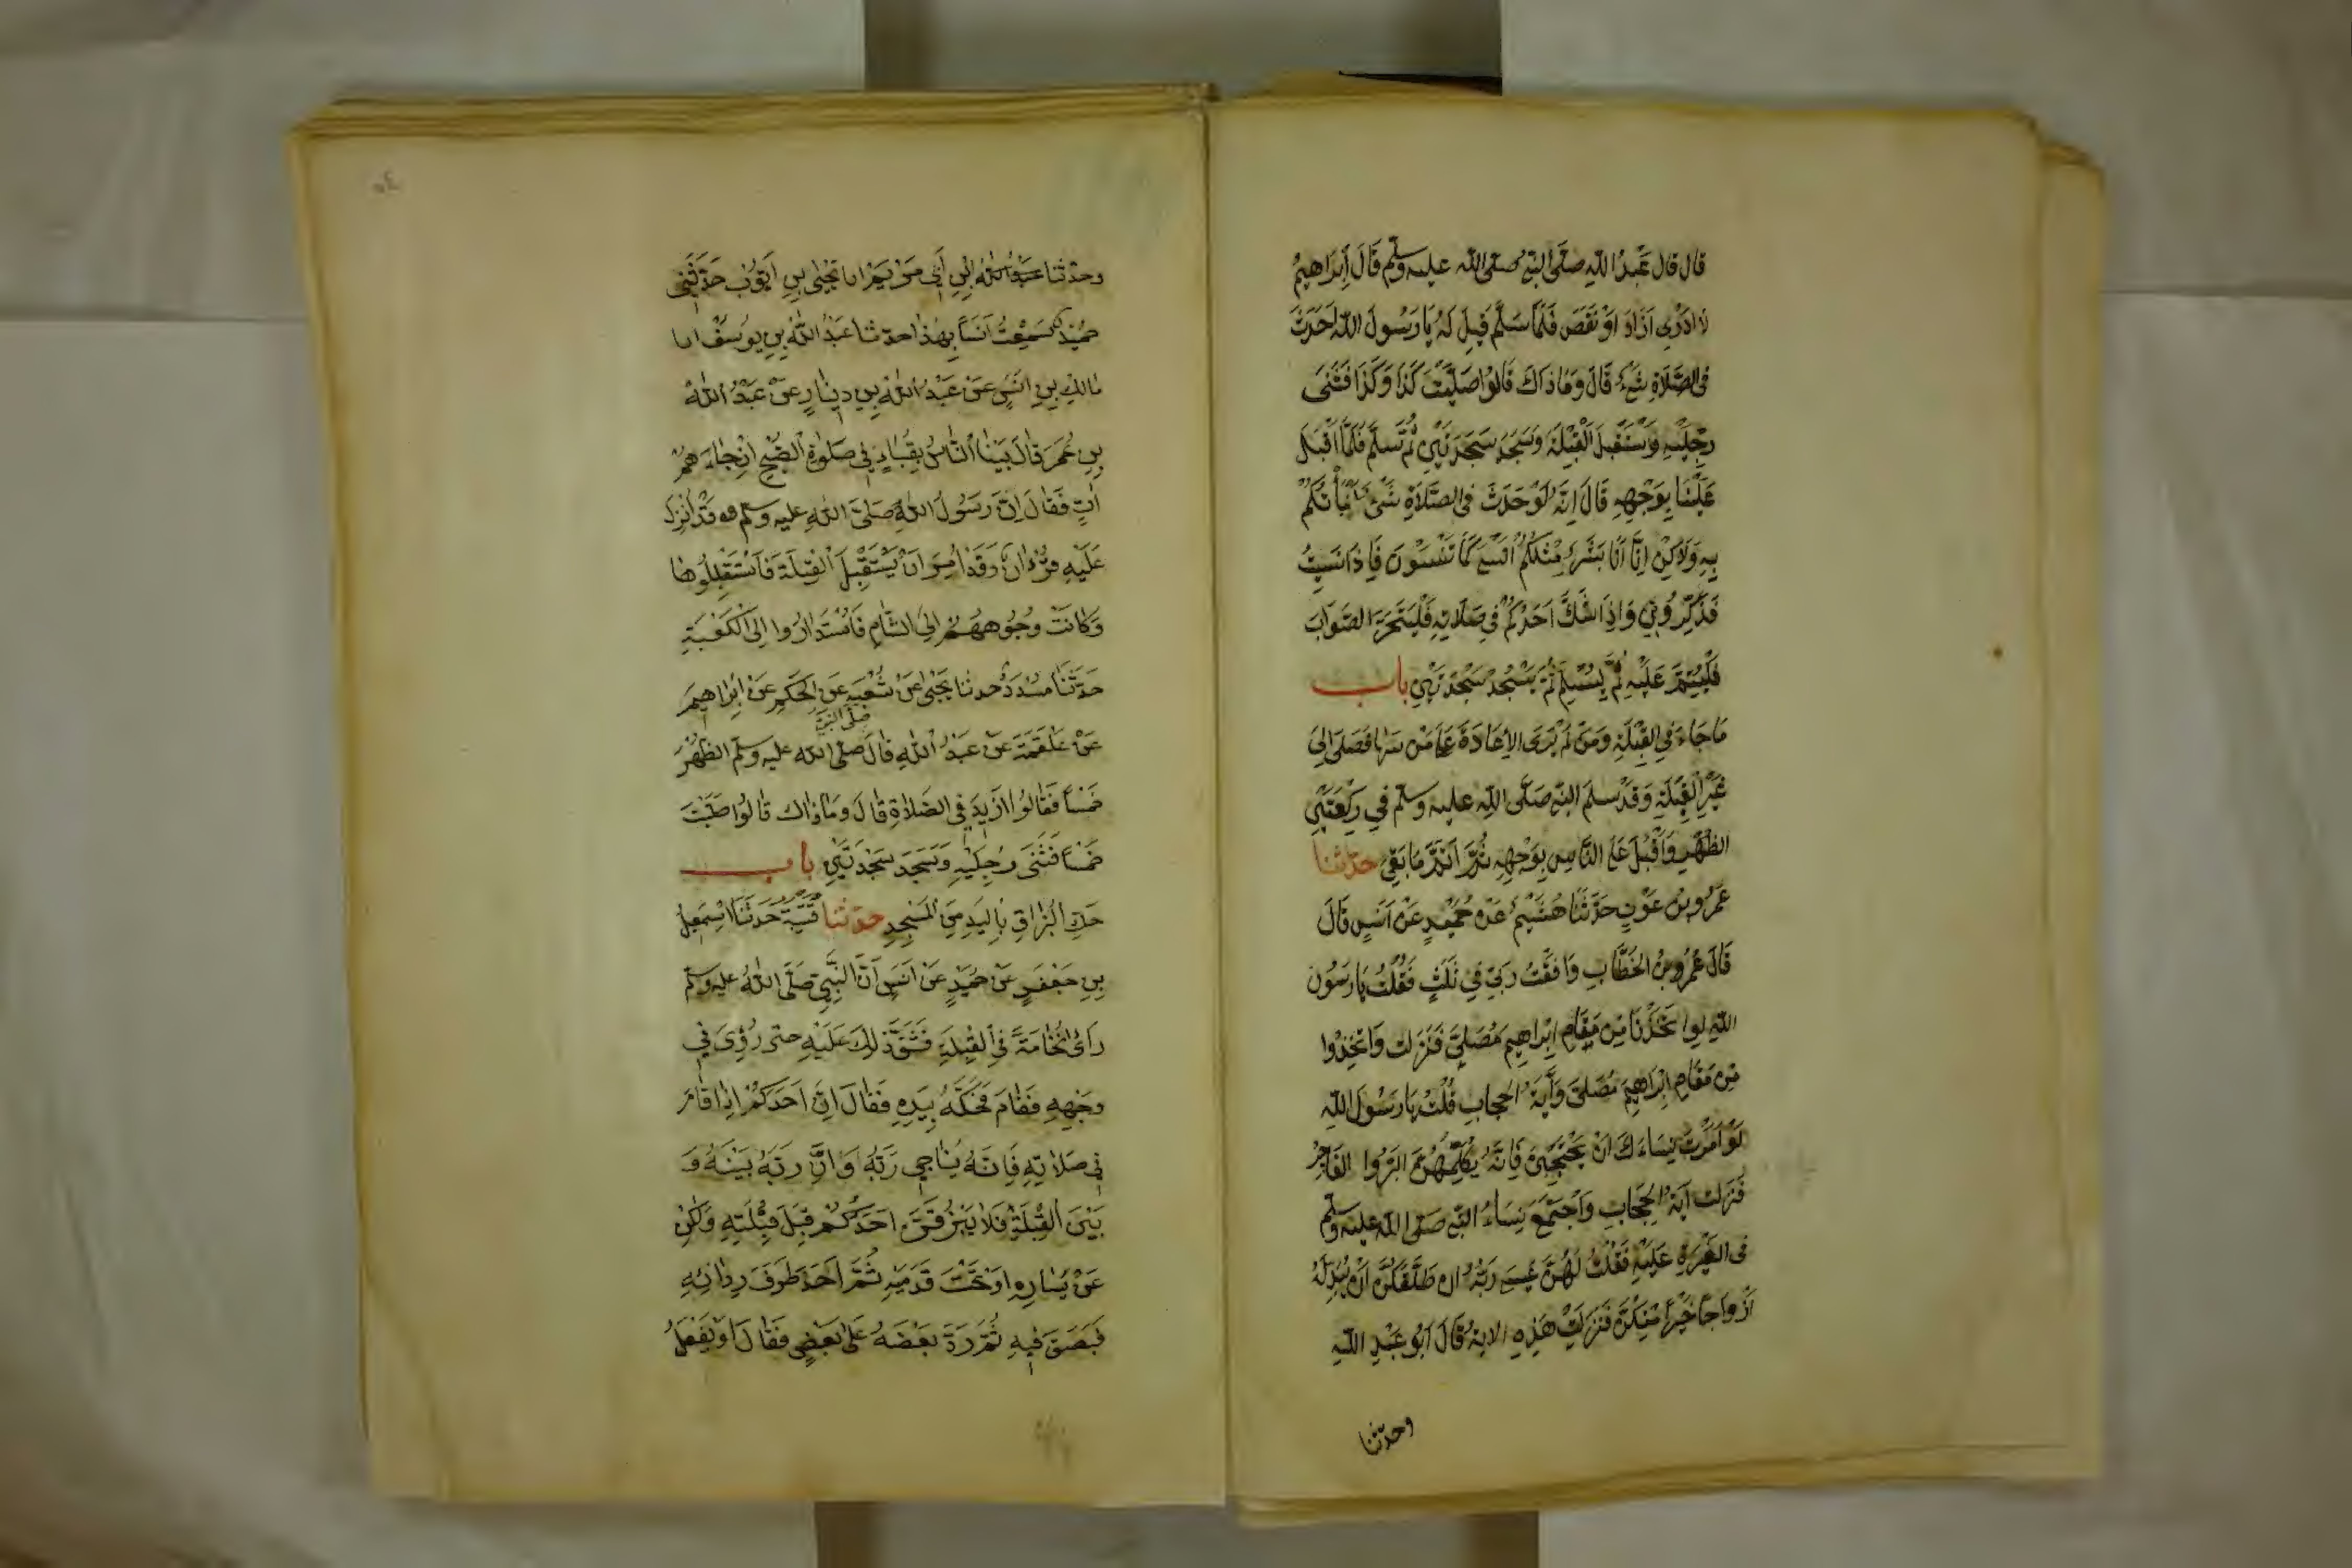 قال قال عَبْدُ اللّهِ صَلَّى النَّبِيُّ صلّى اللّه عليه وسلّم قَالَ اِبْرَاهِيمُ
لَا اَدْرِى اَزَادَ اَوْ نَقَصَ فَلَمَّا سَلَّمَ قِيلَ لَهُ يَا رَسُولَ اللّهِ اَحَدَثَ
فى الصَّلَاةِ شَىْءٌ قَالَ وَمَا ذَاكَ قَالُوا صَلَّيْتَ كَذَا وَكَذَا فَثَنَى
رِجْلَيْهِ وَسْتَقْبِلَ الْقِبْلَةَ وَسَجَدَ سَجْدَتَيْنِ ثُمَّ سَلَّمَ فَلَمَّا اَقْبَلَ
عَلَيْنَا بِوَجْهِهِ قَالَ اِنَّهُ لَوْ حَدَثَ فى الصَّلَاةِ شَىْءٌ نَبَّأْتُكُمْ
بِهِ وَلَاكِنْ اِنَّمَا اَنَا بَشَرٌ مِثْلُكُمْ اَنْسَى كَمَا تَنْسَوْنَ فَاِذَا نَسِيتُ
فَذَكِّرُونِى وَاِذَا شَكَّ اَحَدُكُمْ فى صَلَاتِهِ فَلْيَتَحَرَّ الصَّوَابَ
فَلْيُتِمَّ عَلَيْهِ ثُمَّ يُسَلِّمْ ثُمَّ يَسْجُدْ سَجْدَتَيْنِ باب
مَا جَاءَ فى الْقِبْلَةِ وَمَنْ لَمْ يَرَى الْاِعَادَةَ عَلَى مَنْ سَهَا فَصَلَّى اِلَى
غَيْرِ الْقِبْلَةِ وَقَدْ سلم النبى صَلَّى اللّهِ عليه وسلّم فِي رَكْعَتَىِ
الظُّهْرِ وَاَقْبَلَ عَلَى النَّاسِ بِوَجْهِهِ ثُمَّ اَتَمَّ مَا بَقِىَ حدّثنا
عَمْرُو بْنُ عَوْنٍ حَدَّثَنَا هُشَيْمٌ عَنْ حُمَيْدٍ عَنْ اَنَسٍ قَالَ
قَالَ عُمَرُ وبْنُ الْخَطَّابِ وَافَقْتُ رَبِّى فِي ثَلٰثٍ فَقُلْتُ يَا رَسُولَ
اللّهِ لوِا تَّخَذْنَا مِن مَقَامِ اِبْرَاهِيمَ مُصَلًّى فَنَزَلت وَاتَّخِذُوا
مِن مَقَامِ اِبْرَاهِيمَ مُصَلًّى وَآيَةُ الْحِجَابِ قُلْتُ يَا رَسُولَ اللّهِ
لَوْ اَمَرْتَ نِسَاءَكَ اَنْ يَحْتَجِبْنَ فَاِنَّهُ يُكَلِّمُهُنَّ الْبَرُّوا الفَاجِرُ
فَنَزَلت آيَةُ الْحِجَابِ وَاجْتَمَعَ نِسَاءُ النبى صَلّى اللّه عليه وسلّم
فى الغَيْرَةِ عَلَيْهِ فَقُلْتُ لَهُنَّ عَسَى رَبُّهُ ان طَلَّقَكُنَّ اَنْ يُبْدِلَهُ
اَزْوَاجًا خَيْرًا مِنْكُنَّ فَنَزَلَتْ هٰذِهِ الايةُ قَالَ اَبُو عَبْدِ اللّهِ
وحدّثنا
وحدّثنا عبد اللّه ابن اَبِى مَرْيَمَ انا يَحْيٰى بنِ اَيُّوبُ حَدَّثَنِى
حُمَيْد سَمِعْتُ اَنَسًا بِهٰذَا حدّثنا عَبْدُ اللّهِ بنِ يوُسَفْ انا
مَالِك بِنِ اَنَسٍ عَنْ عَبْدُ اللّهِ بنِ دينَارٍ عَنْ عَبْدُ اللّهْ
بنِ عُمَرَ قَالَ بَيْنَا النَّاسُ بِقُبَاءٍ فِى صَلٰوةِ الصُّبْحِ اِنْجَاءَهُمْ
اٰتٍ فَقَالَ اِنَّ رَسُولَ اللّهِ صَلَّى اللّهِ عليه وسلم قَدْ اُنْزِلَ
عَلَيْهِ قُرْءَانٌ وَقَدْ اُمِرَ اَنْ يَسْتَقْبِلَ الْقِبْلَةَ فَاسْتَقْبِلُوهَا
وَكَانَتْ وُجُوهُهُمْ اِلَى الشَّامِ فَاسْتَدَارُوا اِلَى الْكَعْبَةِ
حَدَّثَنَا مُسَدَّدْ حدثنا يَحْيٰى عَنْ شُعْبَةَ عَنِ الْحَكَمِ عَنْ اِبْرَاهِيمَ
عَنْ عَلْقَمَةَ عَنْ عَبْدُ اللّهِ قَالَ صَلَّى النبىّ صلى اللّه عليه وسلّم الظُّهْرَ
خَمْسًا فَقَالُوا ازِيدَ فِى الصَّلَاةِ قَالَ وَمَا ذَاك قَالُوا صَلَّيْتَ
خَمْسًا فَثَنَى رِجْلَيْهِ وَسَجَدَ سَجْدَتَيْنِ باب
حَكِّ الْبُزَاقِ بِالْيَدِ مِنَ الْمَسْجِدِ حدّثنا قُتَيْبَةُ حَدَثَنَا اِسْمَعِيلُ
بنِ جَعْفَرٍ عَنْ حُمَيْدٍ عَنْ اَنَسٍ اَنَّ النَّبِيَّ صَلَّى اللّهُ عليه وسلّم
رَاَى نُخَامَةً فِى القِبْلَةِ فَشَقَّ ذٰلِكَ عَلَيْهِ حتى رُؤِىَ فِى
وَجْهِهِ فَقَامَ فَحَكَّهُ بِيَدِهِ فَقَالَ اِنَّ اَحَدَكُمْ اِذَا قَامَ
فِى صَلَاتِهِ فَاِنَّهُ يُنَاجِى رَبَّهُ وَاِنَّ رَبَّهُ بَيْنَهُ وَ
بَيْنَ الْقِبْلَةِ فَلَا يَبْزُقَنَّ اَحَدُكُمْ قِبَلَ قِبْلَتِهِ وَلٰكِنْ
عَنْ يَسَارِهِ اَوْ تَحْتَ قَدَمِهِ ثُمَّ اَخَذَ طَرَفَ رِدَائِهِ
فَبَصَقَ فِيهِ ثُمَّ رَدَّ بَعْضَهُ عَلٰى بَعْضٍ فَقَالَ اَوْ يَفْعَلُ